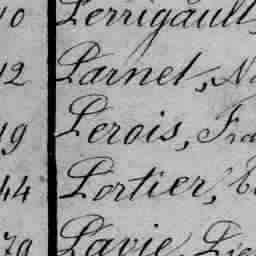 10 Perrigault,
12 Parnet, Na
19 Perois, Fra
44 Portier,
79 Pavie, Pie